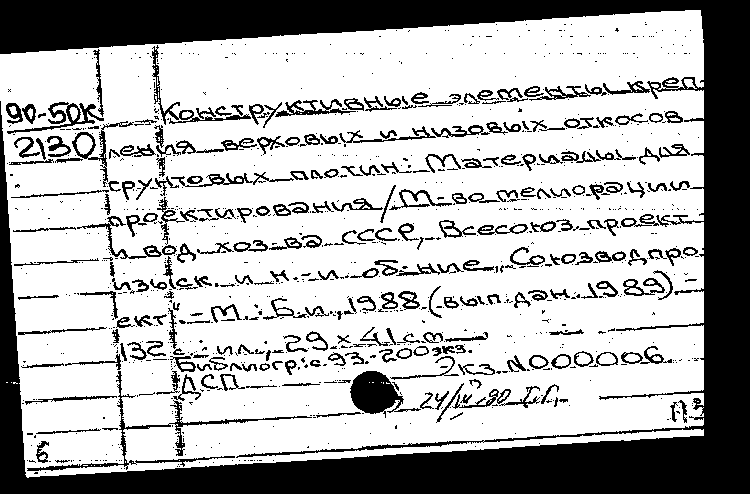 90-50К Конструктивные элементы креп-
2130 ления верховых и низовых откосов
грунтовых плотин: Материалы для
проектирования / М-во мелиорации
и вод. хоз-ва СССР, Всесоюз. проект.-
изыск. и н.-и. об-ние „Союзводпро-
ект“. - М.: Б.и., 1988 (вып. дан. 1989). -
132 с.: ил.; 29 х 41 см
Библиогр.: с. 93. - 200 экз.
ДСП Экз. N000006.
24/IV-90
б